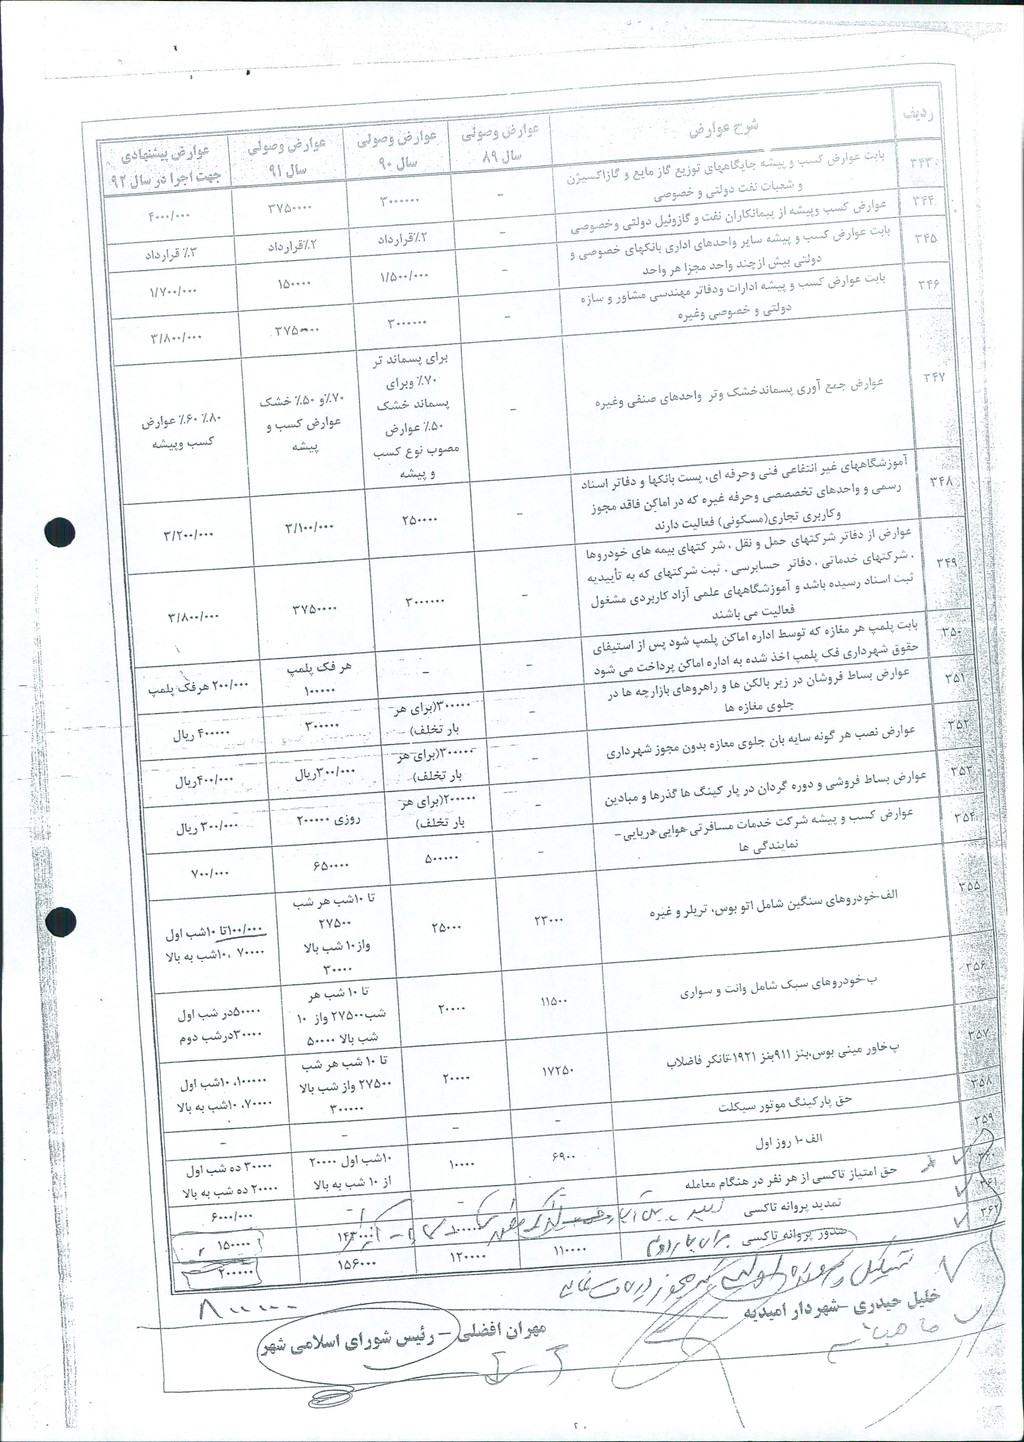 ردیف
شرح عوارض
عوارض وصولی سال ۸۹
عوارض وصولی سال ۹۰
عوارض وصولی سال ۹۱
عوارض پیشنهادی جهت اجرا در سال ۹۲
۳۴۳
بابت عوارض کسب و پیشه جایگاههای توزیع گاز مایع و گازاکسیژن
و شعبات نفت دولتی و خصوصی
-
۳۰۰۰۰۰۰
۳۷۵۰۰۰۰
۴۰۰۰/۰۰۰
۳۴۴
عوارض کسب وپیشه از پیمانکاران نفت و گازوئیل دولتی وخصوصی
-
۲٪قرارداد
۲٪قرارداد
۳٪ قرارداد
۳۴۵
بابت عوارض کسب و پیشه سایر واحدهای اداری بانکهای خصوصی و
دولتی بیش ازچند واحد مجزا هر واحد
-
۱/۵۰۰/۰۰۰
۱۵۰۰۰۰
۱/۷۰۰/۰۰۰
۳۴۶
بابت عوارض کسب و پیشه ادارات ودفاتر مهندسی مشاور و سازه
دولتی و خصوصی وغیره
-
۳۰۰۰۰۰۰
۳/۸۰۰/۰۰۰
۳۴۷
عوارض جمع آوری پسماندخشک وتر واحدهای صنفی وغیره
-
برای پسماند تر
۷۰٪ وبرای
پسماند خشک
۵۰٪ عوارض
مصوب نوع کسب
و پیشه
۷۰٪و ۵۰٪ خشک
عوارض کسب و
پیشه
۸۰٪ ۶۰٪ عوارض
کسب وپیشه
۳۴۸
آموزشگاههای غیر انتفاعی فنی وحرفه ای، پست بانکها و دفاتر اسناد
رسمی و واحدهای تخصصی وحرفه غیره که در اماکن فاقد مجوز
وکاربری تجاری(مسکونی) فعالیت دارند
-
۲۵۰۰۰۰
۳/۱۰۰/۰۰۰
۳/۲۰۰/۰۰۰
۳۴۹
عوارض از دفاتر شرکتهای حمل و نقل ، شرکتهای بیمه های خودروها
، شرکتهای خدماتی ، دفاتر حسابرسی ، ثبت شرکتهای که به تأییدیه
ثبت اسناد رسیده باشد و آموزشگاههای علمی آزاد کاربردی مشغول
فعالیت می باشند
-
۳۰۰۰۰۰۰
۳۷۵۰۰۰۰
۳/۸۰۰/۰۰۰
۳۵۰
بابت پلمپ هر مغازه که توسط اداره اماکن پلمپ شود پس از استیفای
حقوق شهرداری فک پلمپ اخذ شده به اداره اماکن پرداخت می شود
-
-
هر فک پلمپ
۱۰۰۰۰۰
۲۰۰/۰۰۰ هرفک پلمپ
۳۵۱
عوارض بساط فروشان در زیر بالکن ها و راهروهای بازارچه ها در
جلوی مغازه ها
-
۳۰۰۰۰۰(برای هر
بار تخلف)
۳۰۰۰۰۰
۴۰۰۰۰۰ ریال
۳۵۲
عوارض نصب هر گونه سایه بان جلوی مغازه بدون مجوز شهرداری
-
۳۰۰۰۰۰(برای هر
بار تخلف)
۳۰۰/۰۰۰ریال
۴۰۰/۰۰۰ریال
۳۵۳
عوارض بساط فروشی و دوره گردان در پارکینگ ها گذرها و میادین
-
۲۰۰۰۰۰(برای هر
بار تخلف)
روزی ۲۰۰۰۰۰
۳۰۰/۰۰۰ ریال
۳۵۴
عوارض کسب و پیشه شرکت خدمات مسافرتی هوایی دریایی -
نمایندگی ها
-
۵۰۰۰۰۰
۶۵۰۰۰۰
۷۰۰/۰۰۰
۳۵۵
الف-خودروهای سنگین شامل اتو بوس، تریلر و غیره
۲۳۰۰۰
۲۵۰۰۰
تا ۱۰شب هر شب
۲۷۵۰۰
واز۱۰ شب بالا
۳۰۰۰۰
۱۰۰/۰۰۰تا ۱۰شب اول
۷۰۰۰۰ ،۱۰شب به بالا
۳۵۶
ب-خودروهای سبک شامل وانت و سواری
۱۱۵۰۰
۲۰۰۰۰
تا ۱۰ شب هر
شب۲۷۵۰۰ واز ۱۰
شب بالا ۵۰۰۰۰
۵۰۰۰۰در شب اول
۳۰۰۰۰درشب دوم
۳۵۷
پ-خاور مینی بوس،بنز ۹۱۱بنز ۱۹۲۱-تانکر فاضلاب
۱۷۲۵۰
۲۰۰۰۰
تا ۱۰ شب هر شب
۲۷۵۰۰ واز شب بالا
۳۰۰۰۰۰
۱۰۰۰۰۰، ۱۰شب اول
۷۰۰۰۰، ۱۰شب به بالا
۳۵۸
حق پارکینگ موتور سیکلت
-
-
-
-
۳۵۹
الف ۱۰ روز اول
۶۹۰۰
۱۰۰۰۰
۱۰شب اول ۲۰۰۰۰
از ۱۰ شب به بالا
۳۰۰۰۰ ده شب اول
۲۰۰۰۰ ده شب به بالا
حق امتیاز تاکسی از هر نفر در هنگام معامله
-
۶۰۰۰/۰۰۰
۳۶۱
تمدید پروانه تاکسی
۱۰۰۰۰۰
۱۴۳۰۰۰
۱۵۰۰۰۰
۳۶۲
صدور پروانه تاکسی برای بار دوم
۱۱۰۰۰۰
۱۲۰۰۰۰
۱۵۶۰۰۰
۲۰۰۰۰۰
خلیل حیدری -شهردار امیدیه
مهران افضلی - رئیس شورای اسلامی شهر
۸۰۰۰۰۰
۲۰